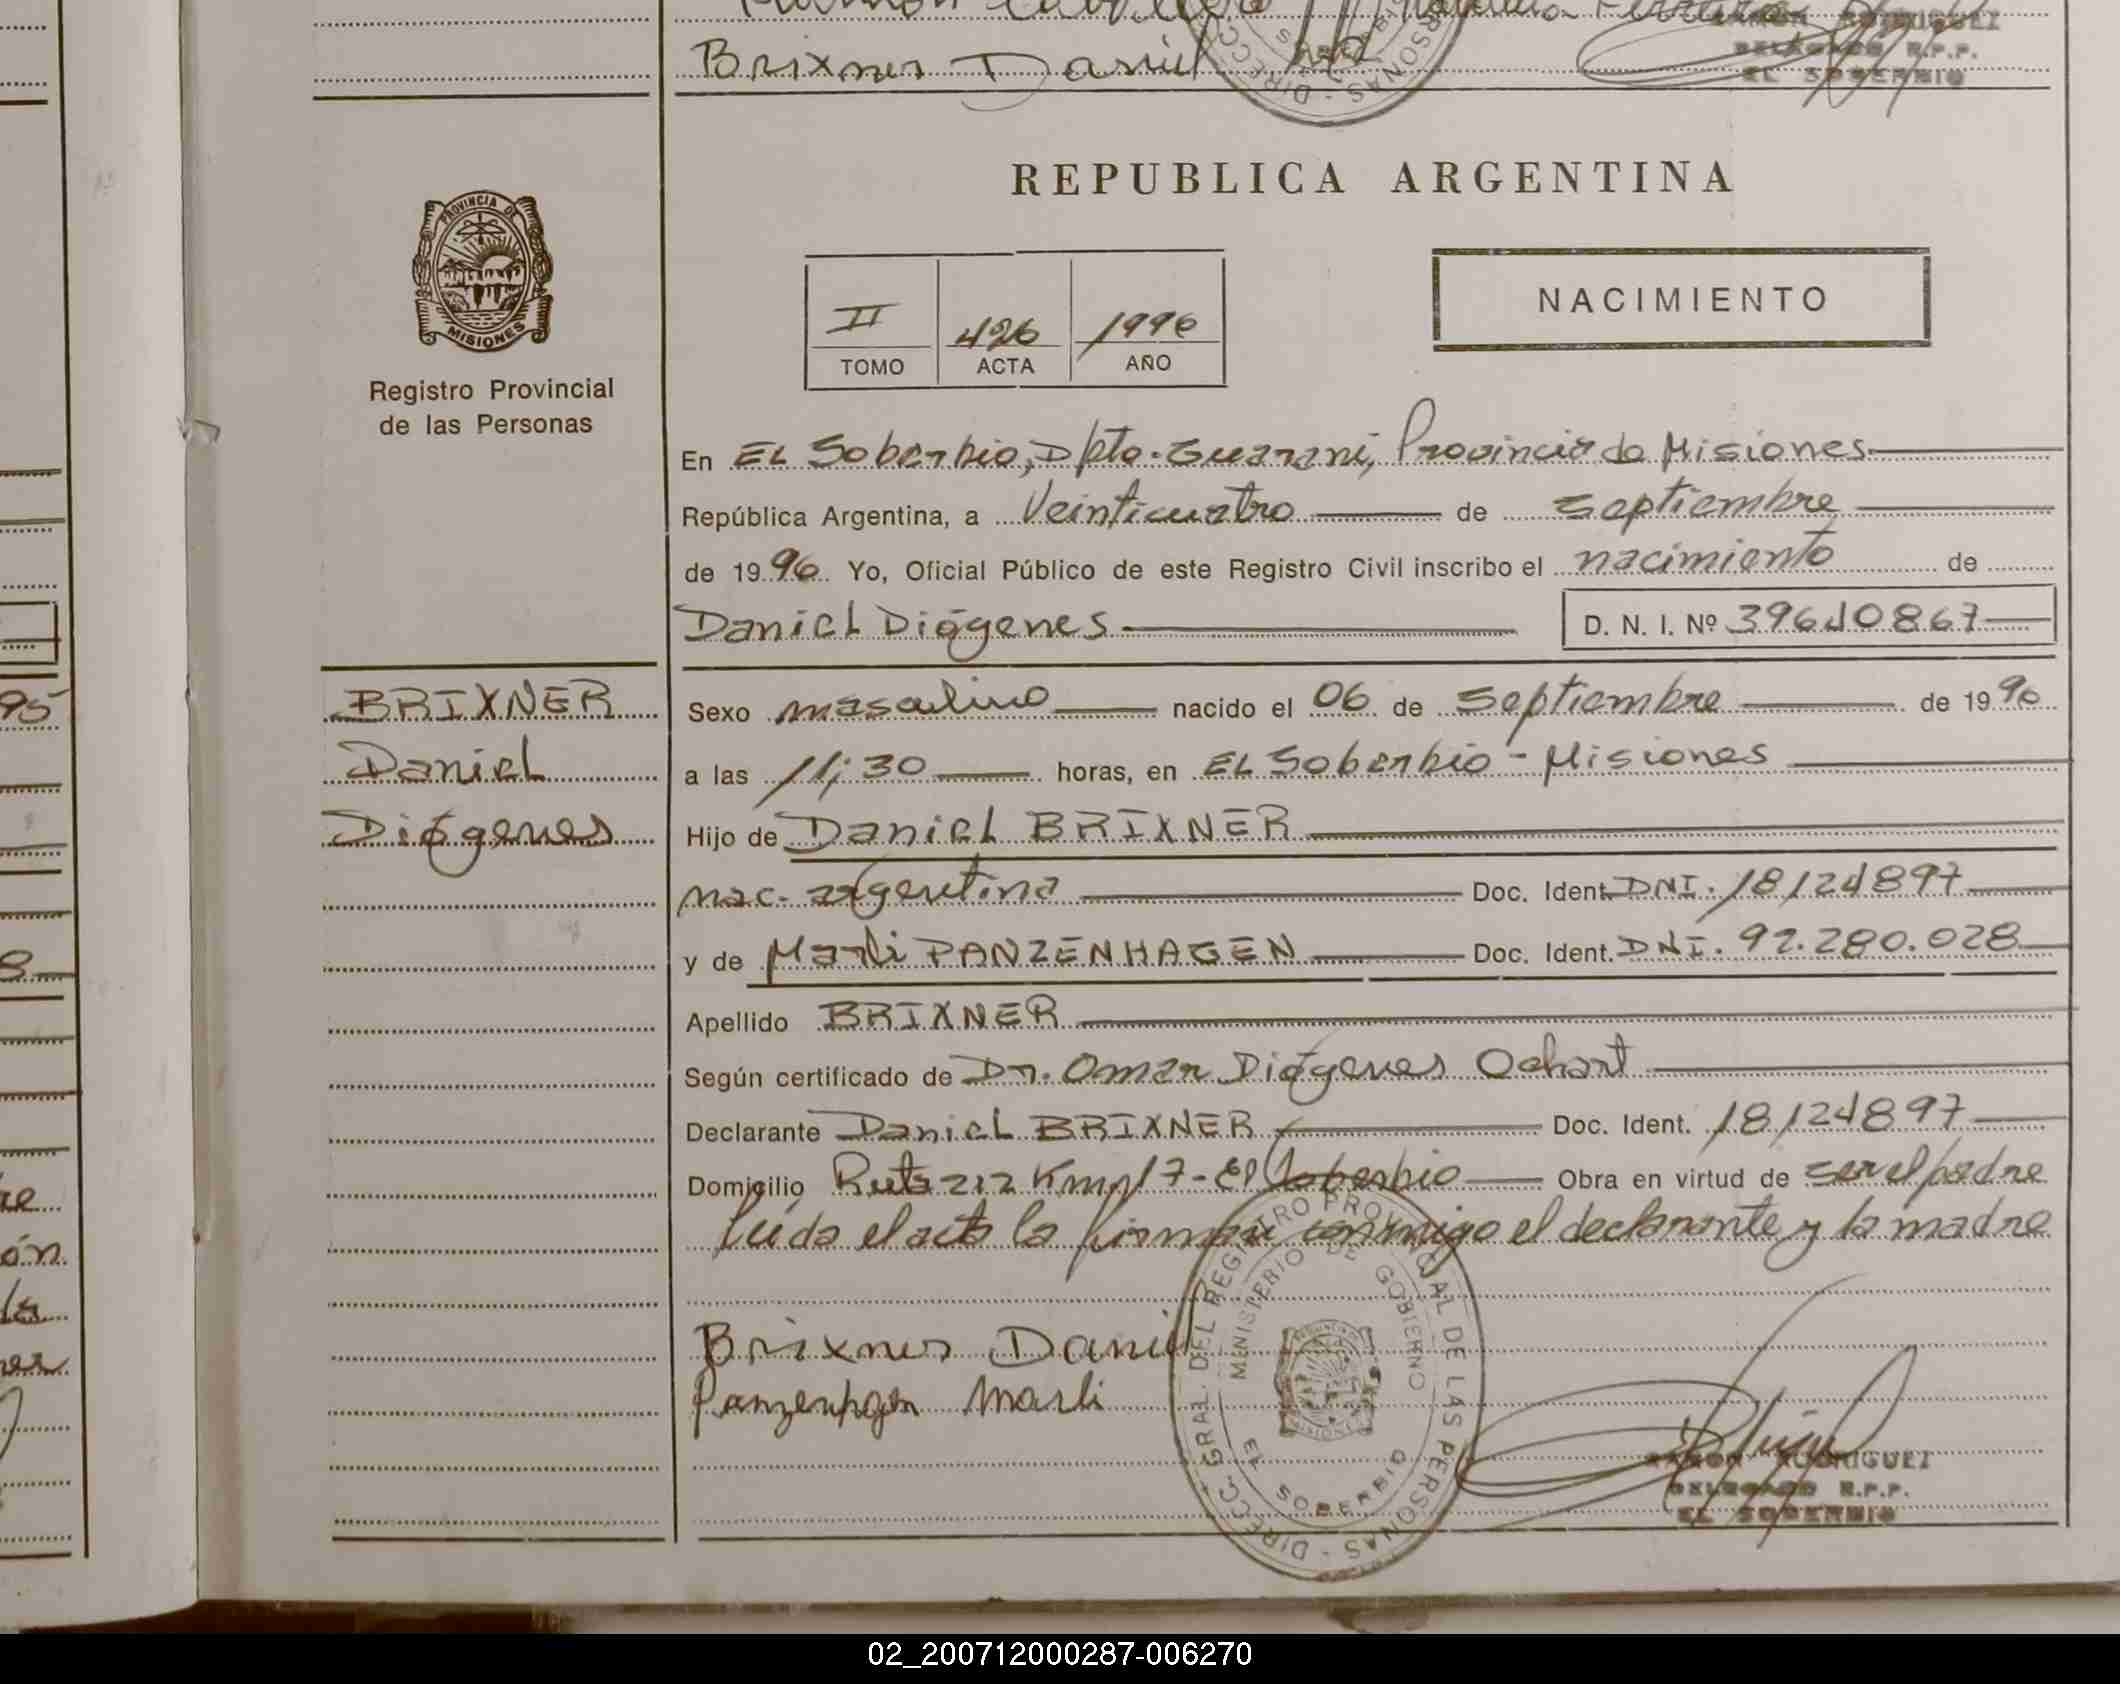 Brixner Daniel
RAMON RODRIGUEZ
DELEGADO R.P.P.
EL SOBERBIO
REPUBLICA ARGENTINA
PROVINCIA DE
MISIONES
Registro Provincial
de las Personas
II 426 1996
TOMO ACTA AÑO
NACIMIENTO
En EL Soberbio, Dpto. Guaraní, Provincia de Misiones
República Argentina, a Veinticuatro de septiembre
de 1996 Yo, Oficial Público de este Registro Civil inscribo el nacimiento de
Daniel Diógenes D. N. I. Nº 39610867
BRIXNER
Daniel
Diógenes
Sexo masculino nacido el 06 de septiembre de 1996
a las 11;30 horas, en EL Soberbio - Misiones
Hijo de Daniel BRIXNER
nac. argentina Doc. Ident. DNI. 18124897
y de Marli PANZENHAGEN Doc. Ident. DNI. 92.280.028
Apellido BRIXNER
Según certificado de Dr. Omar Diógenes Ochart
Declarante Daniel BRIXNER Doc. Ident. 18124897
Domicilio Ruta 212 Km 17 - El Soberbio Obra en virtud de ser el padre
Leída el acta la firman conmigo el declarante y la madre
Brixner Daniel
Panzenhgen Marli
DIRECC. GRAL. DEL REGISTRO PROVINCIAL DE LAS PERSONAS
MINISTERIO DE GOBIERNO
EL SOBERBIO
RAMON RODRIGUEZ
DELEGADO R.P.P.
EL SOBERBIO
02_200712000287-006270